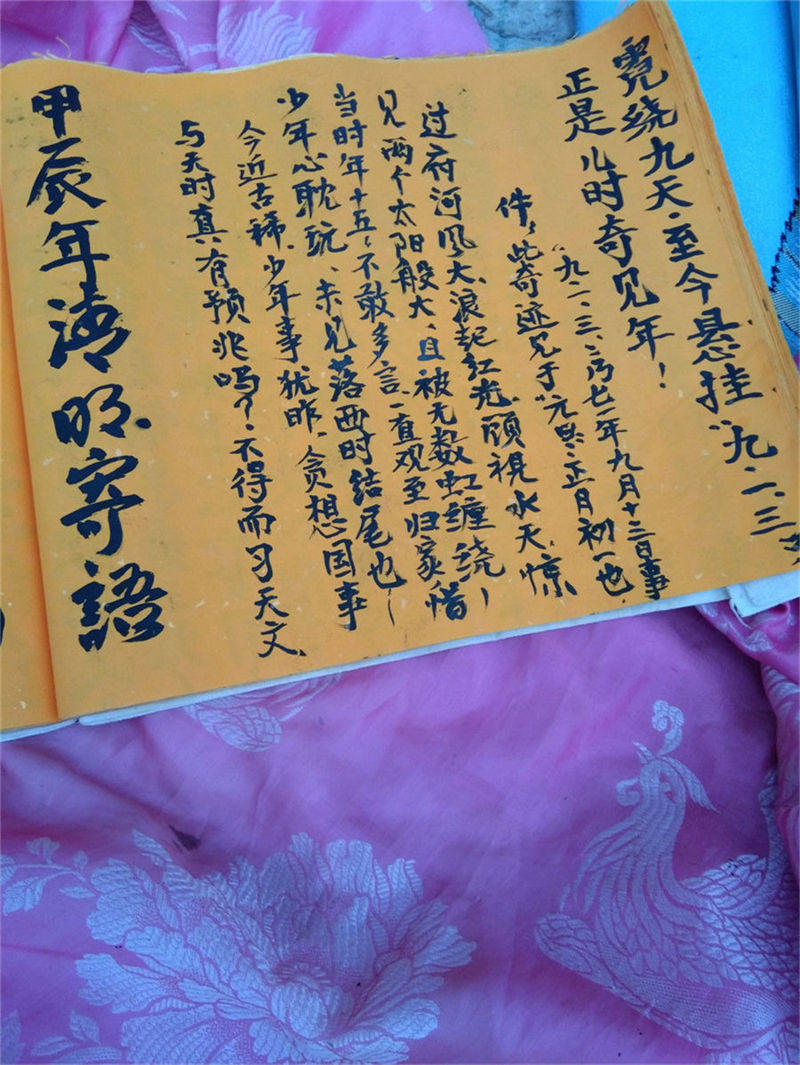 霓绕九天·至今悬挂"九·一·三
正是儿时奇见年！
"九·一·三"乃七一年九月十三日事
件，此奇迹见于"元"正月初一也，
过府河风大浪起红光顾视水天惊
见两个太阳般大、且被无数虹缠绕，
当时年十五，不敢多言一直观至归家惜
少年心耽玩、未见落西时结尾也！
今近古稀、少年事犹昨、贪想国事
与天时真有预兆吗？不得而习天文、
甲辰年清明寄語